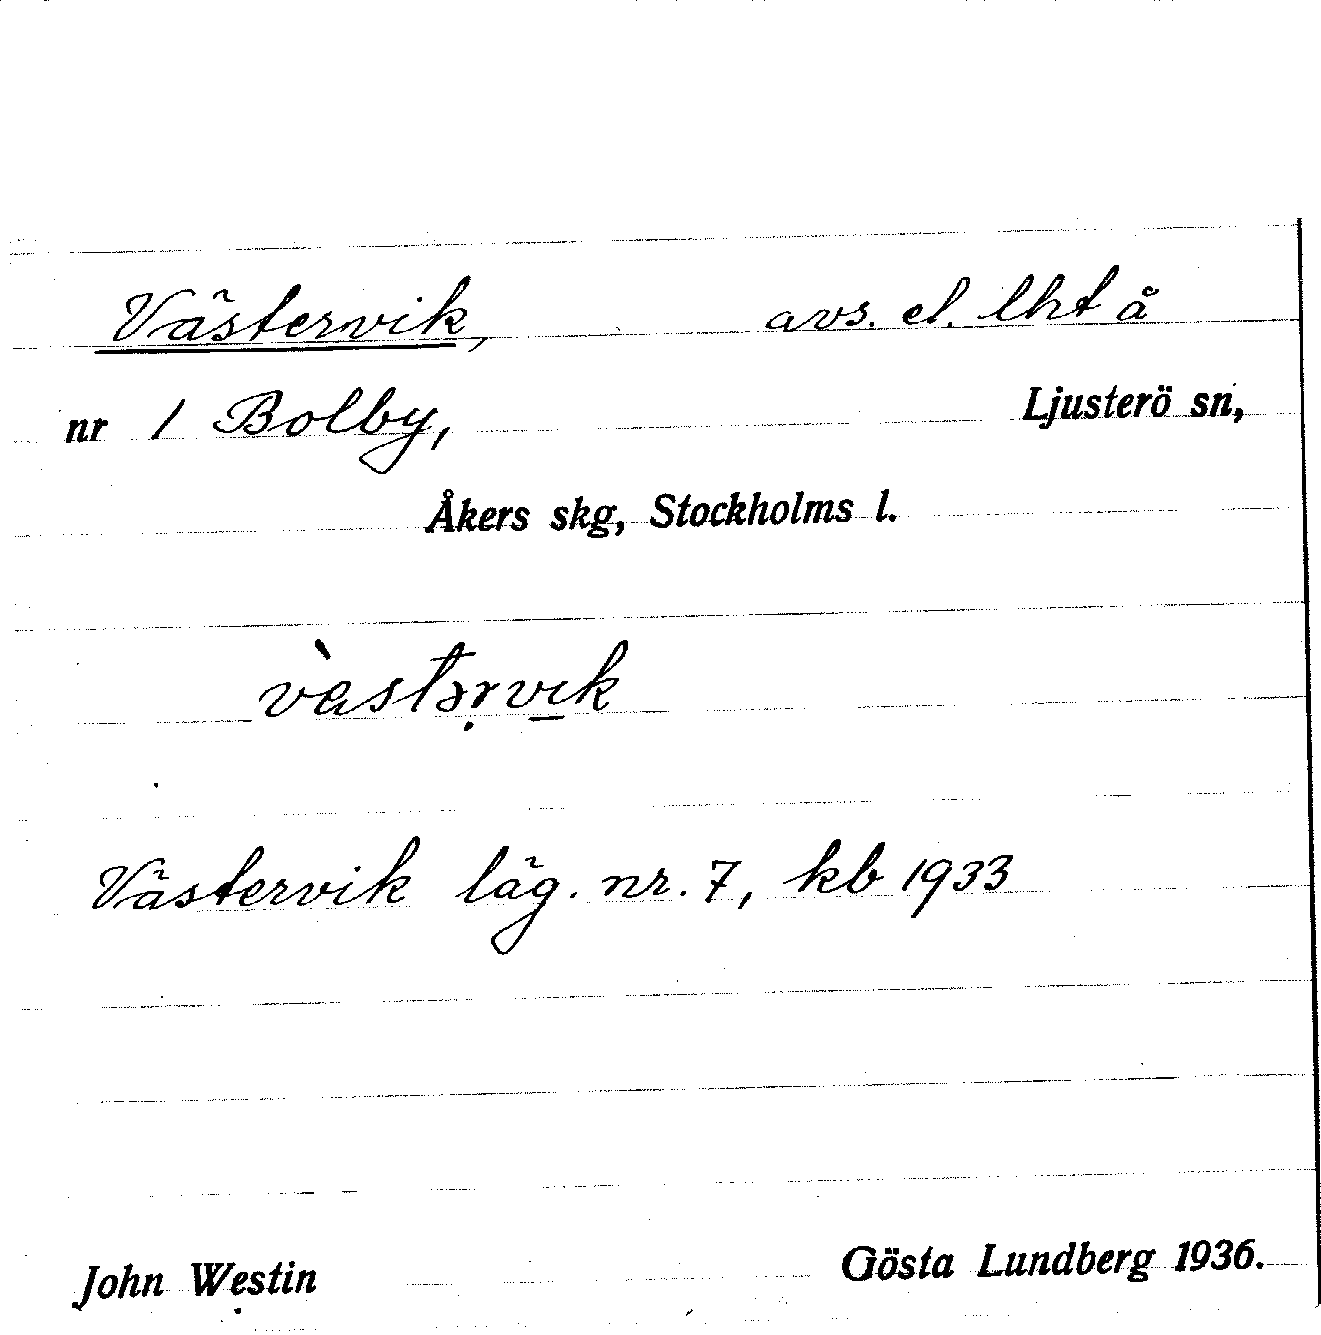 Västervik, avs. el. lht å
nr 1 Bolby, Ljusterö sn,
Åkers skg, Stockholms l.
vàstərvik
Västervik läg. nr. 7, kb 1933
John Westin Gösta Lundberg 1936.